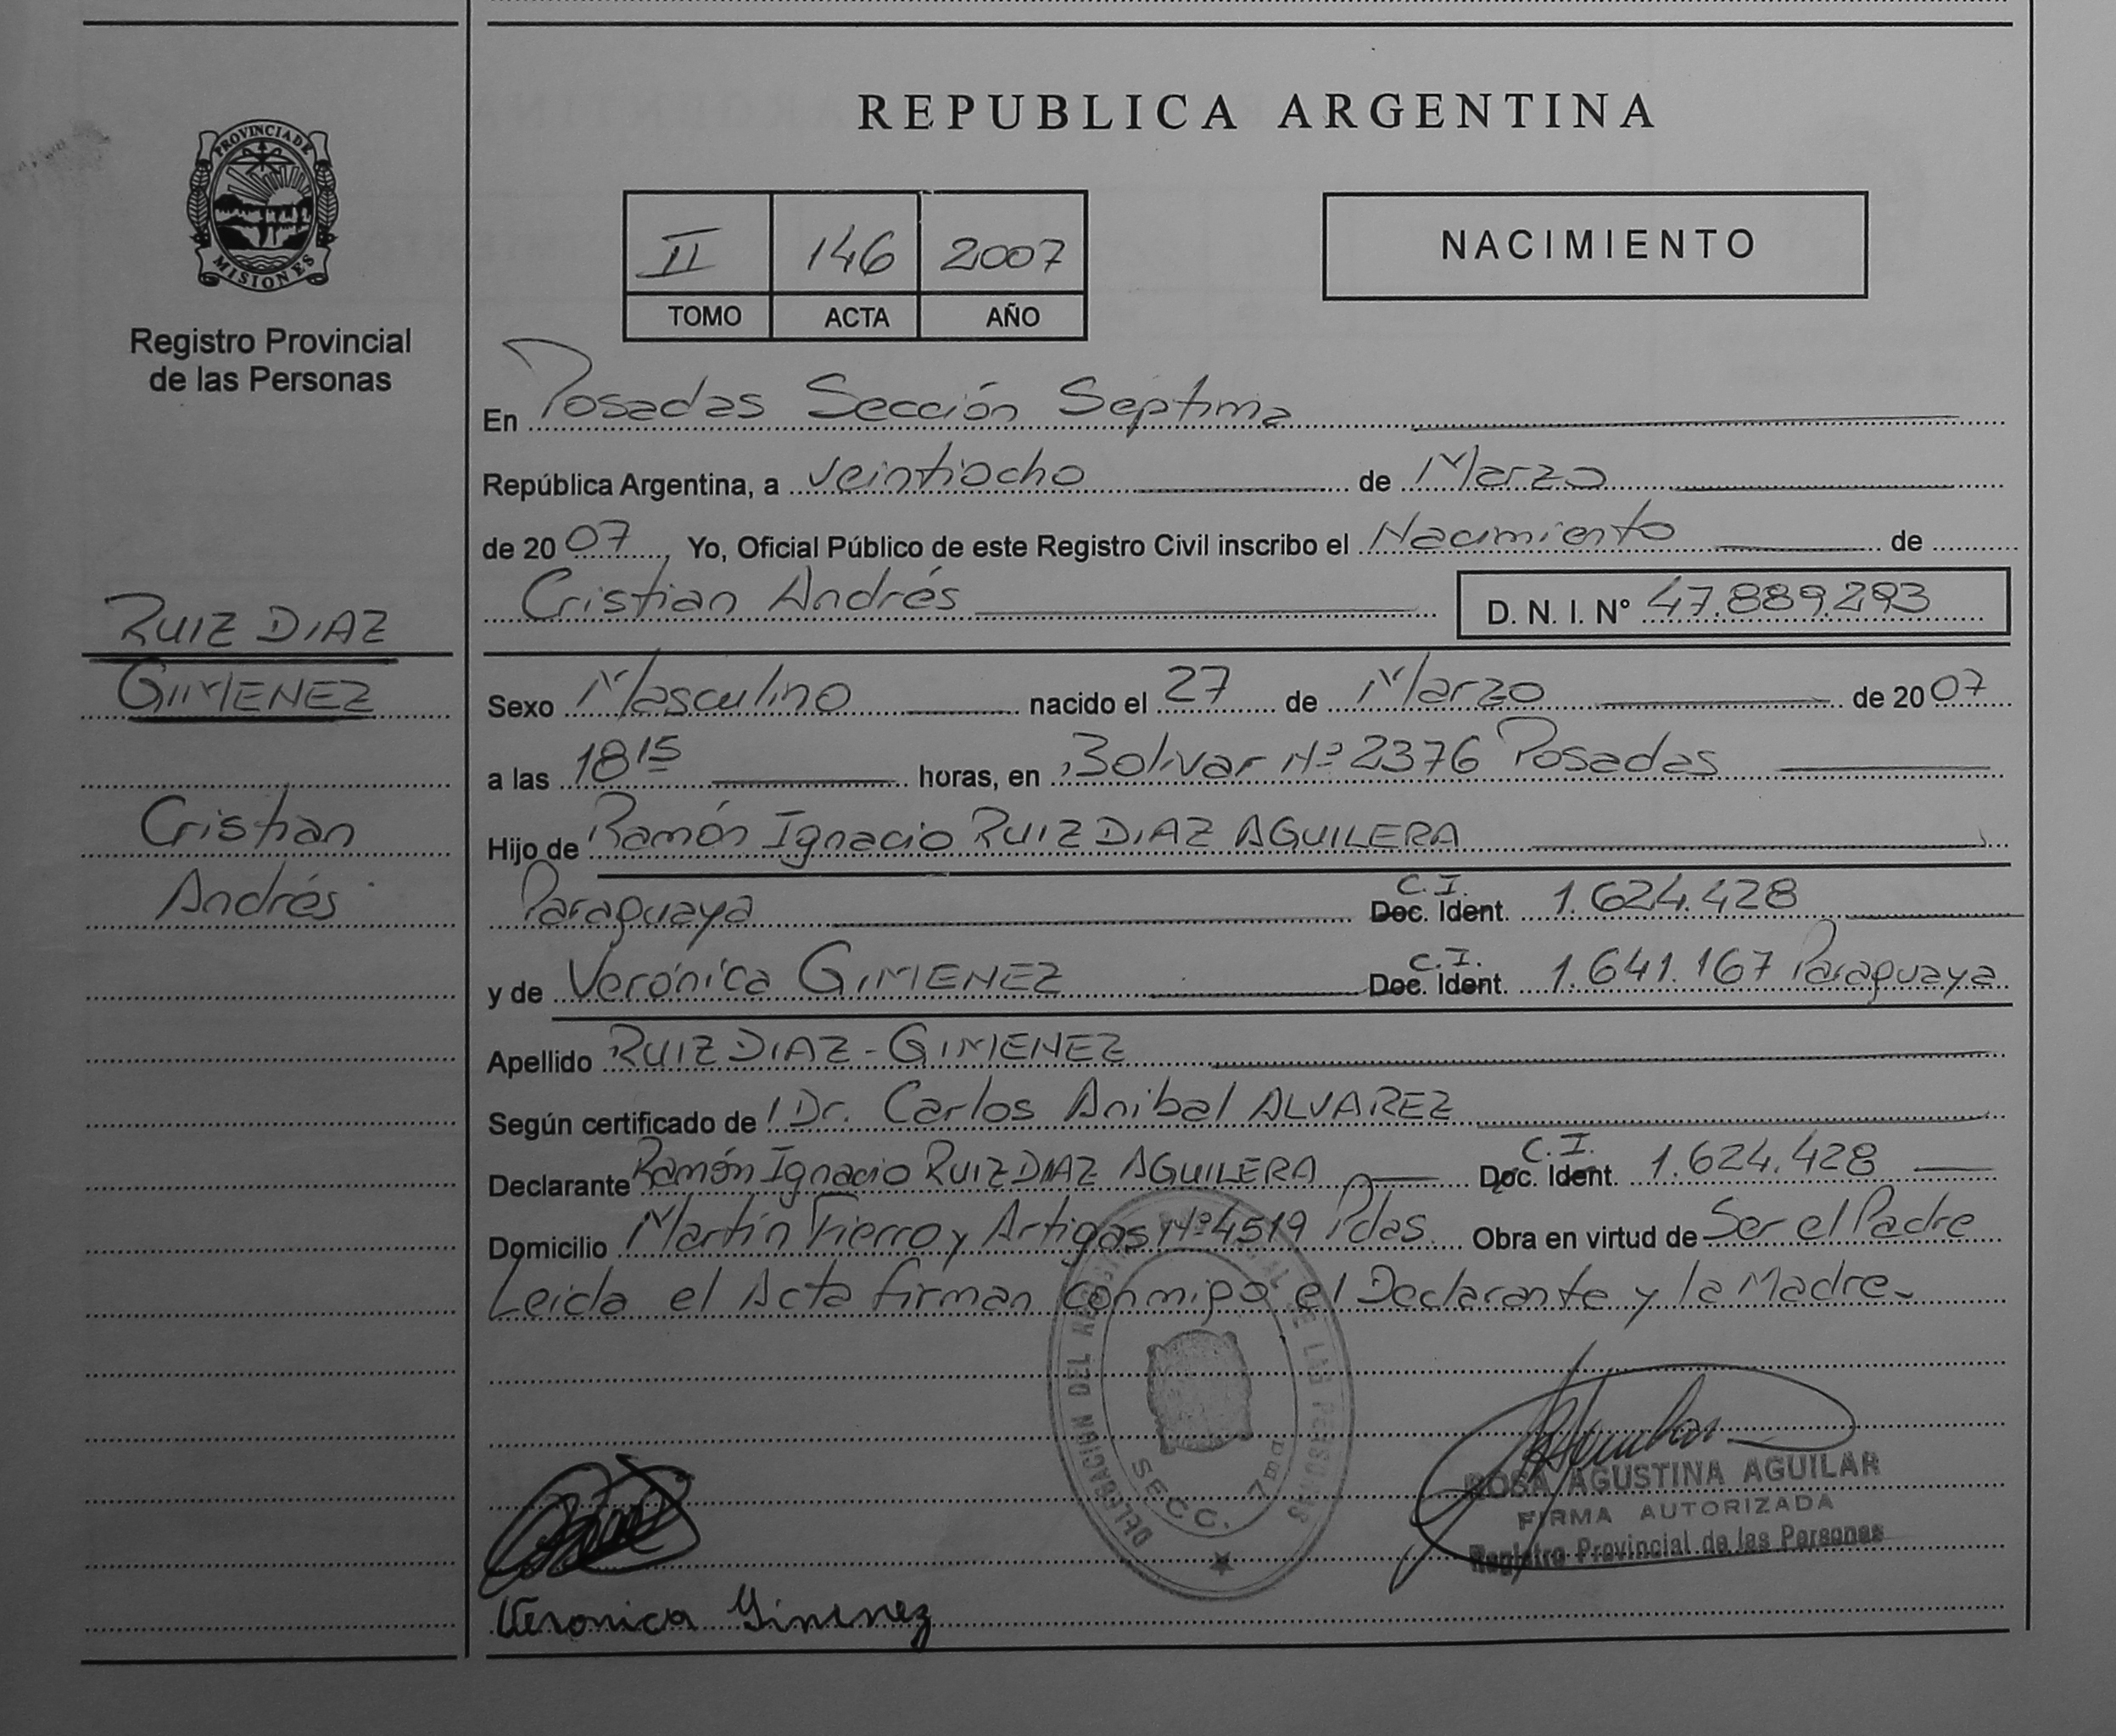 PROVINCIA DE
MISIONES
Registro Provincial
de las Personas
RUIZ DIAZ
GIMENEZ
Cristian
Andrés
REPUBLICA ARGENTINA
II 146 2007
TOMO ACTA AÑO
NACIMIENTO
En Posadas Sección Septima
República Argentina, a veintiocho de Marzo
de 2007, Yo, Oficial Público de este Registro Civil inscribo el Nacimiento de
Cristian Andrés D. N. I. N° 47.889.293
Sexo Masculino nacido el 27 de Marzo de 2007
a las 18 15 horas, en Bolivar Nº 2376 Posadas
Hijo de Ramón Ignacio RUIZ DIAZ AGUILERA
Paraguaya C.I. Doc. Ident. 1.624.428
y de Verónica GIMENEZ C.I. Doc. Ident. 1.641.167 Paraguaya
Apellido RUIZ DIAZ - GIMENEZ
Según certificado de Dr. Carlos Anibal ALVAREZ
Declarante Ramón Ignacio RUIZ DIAZ AGUILERA C.I. Doc. Ident. 1.624.428
Domicilio Martín Fierro y Artigas Nº 4519 Pdas. Obra en virtud de Ser el Padre
Leida el Acta firman conmigo el Declarante y la Madre.
DELEGACION DEL REGISTRO PROVINCIAL DE LAS PERSONAS
SECC. 7ma
ROSA AGUSTINA AGUILAR
FIRMA AUTORIZADA
Registro Provincial de las Personas
Veronica Gimenez